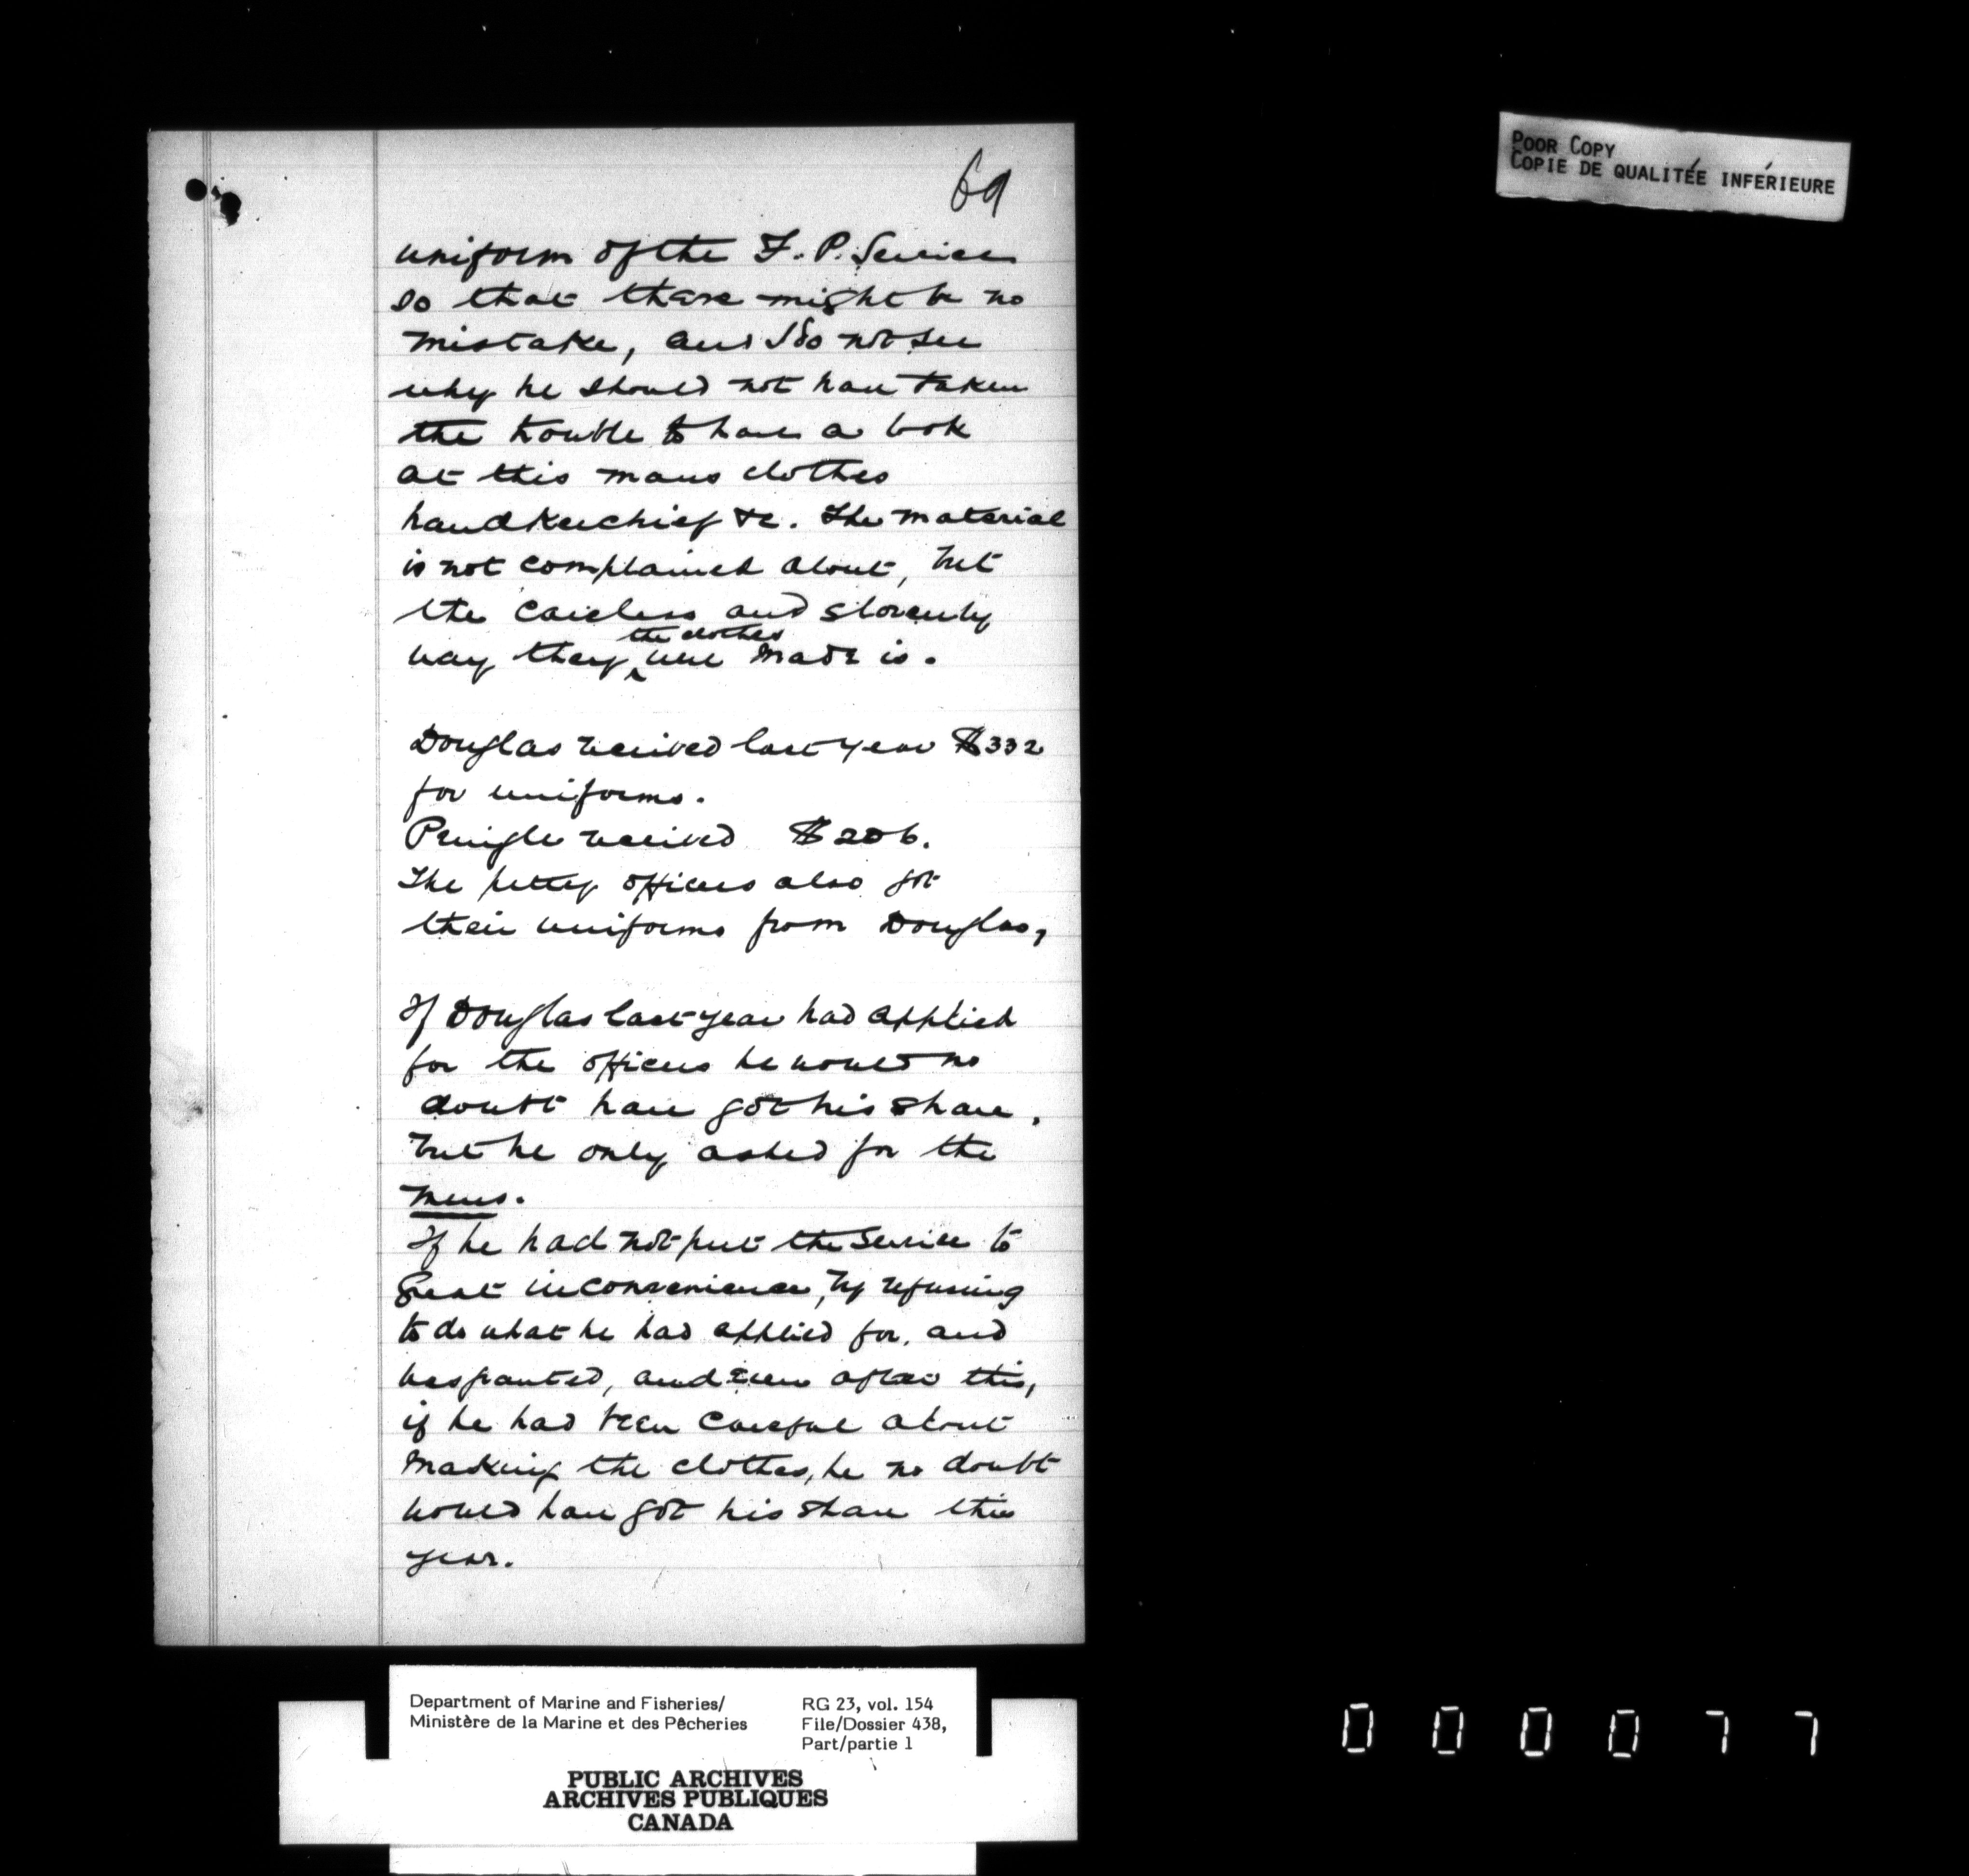 69
uniform of the F. P. Service
so that there might be no
mistake, and I do not see
why he should not have taken
the trouble to have a look
at this mans clothes
handkerchief &c. The material
is not complained about, but
the careless and slovenly
the clothes
way they were made is.
Douglas received last year $332
for uniforms.
Pringle received $206.
The petty officers also got
their uniforms from Douglas,
If Douglas last year had applied
for the officers he would no
doubt have got his share,
but he only asked for the
mens.
If he had not put the Service to
great inconvenience, by refusing
to do what he had applied for, and
was granted, and even after this,
if he had been careful about
making the clothes, he no doubt
would have got his share this
year.
POOR COPY
COPIE DE QUALITÉE INFÉRIEURE
Department of Marine and Fisheries/
Ministère de la Marine et des Pêcheries
RG 23, vol. 154
File/Dossier 438,
Part/partie 1
PUBLIC ARCHIVES
ARCHIVES PUBLIQUES
CANADA
000077